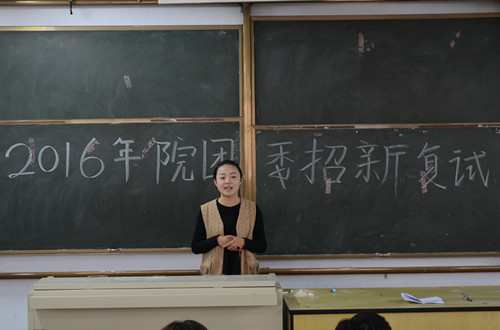 2016年院团委招新复试